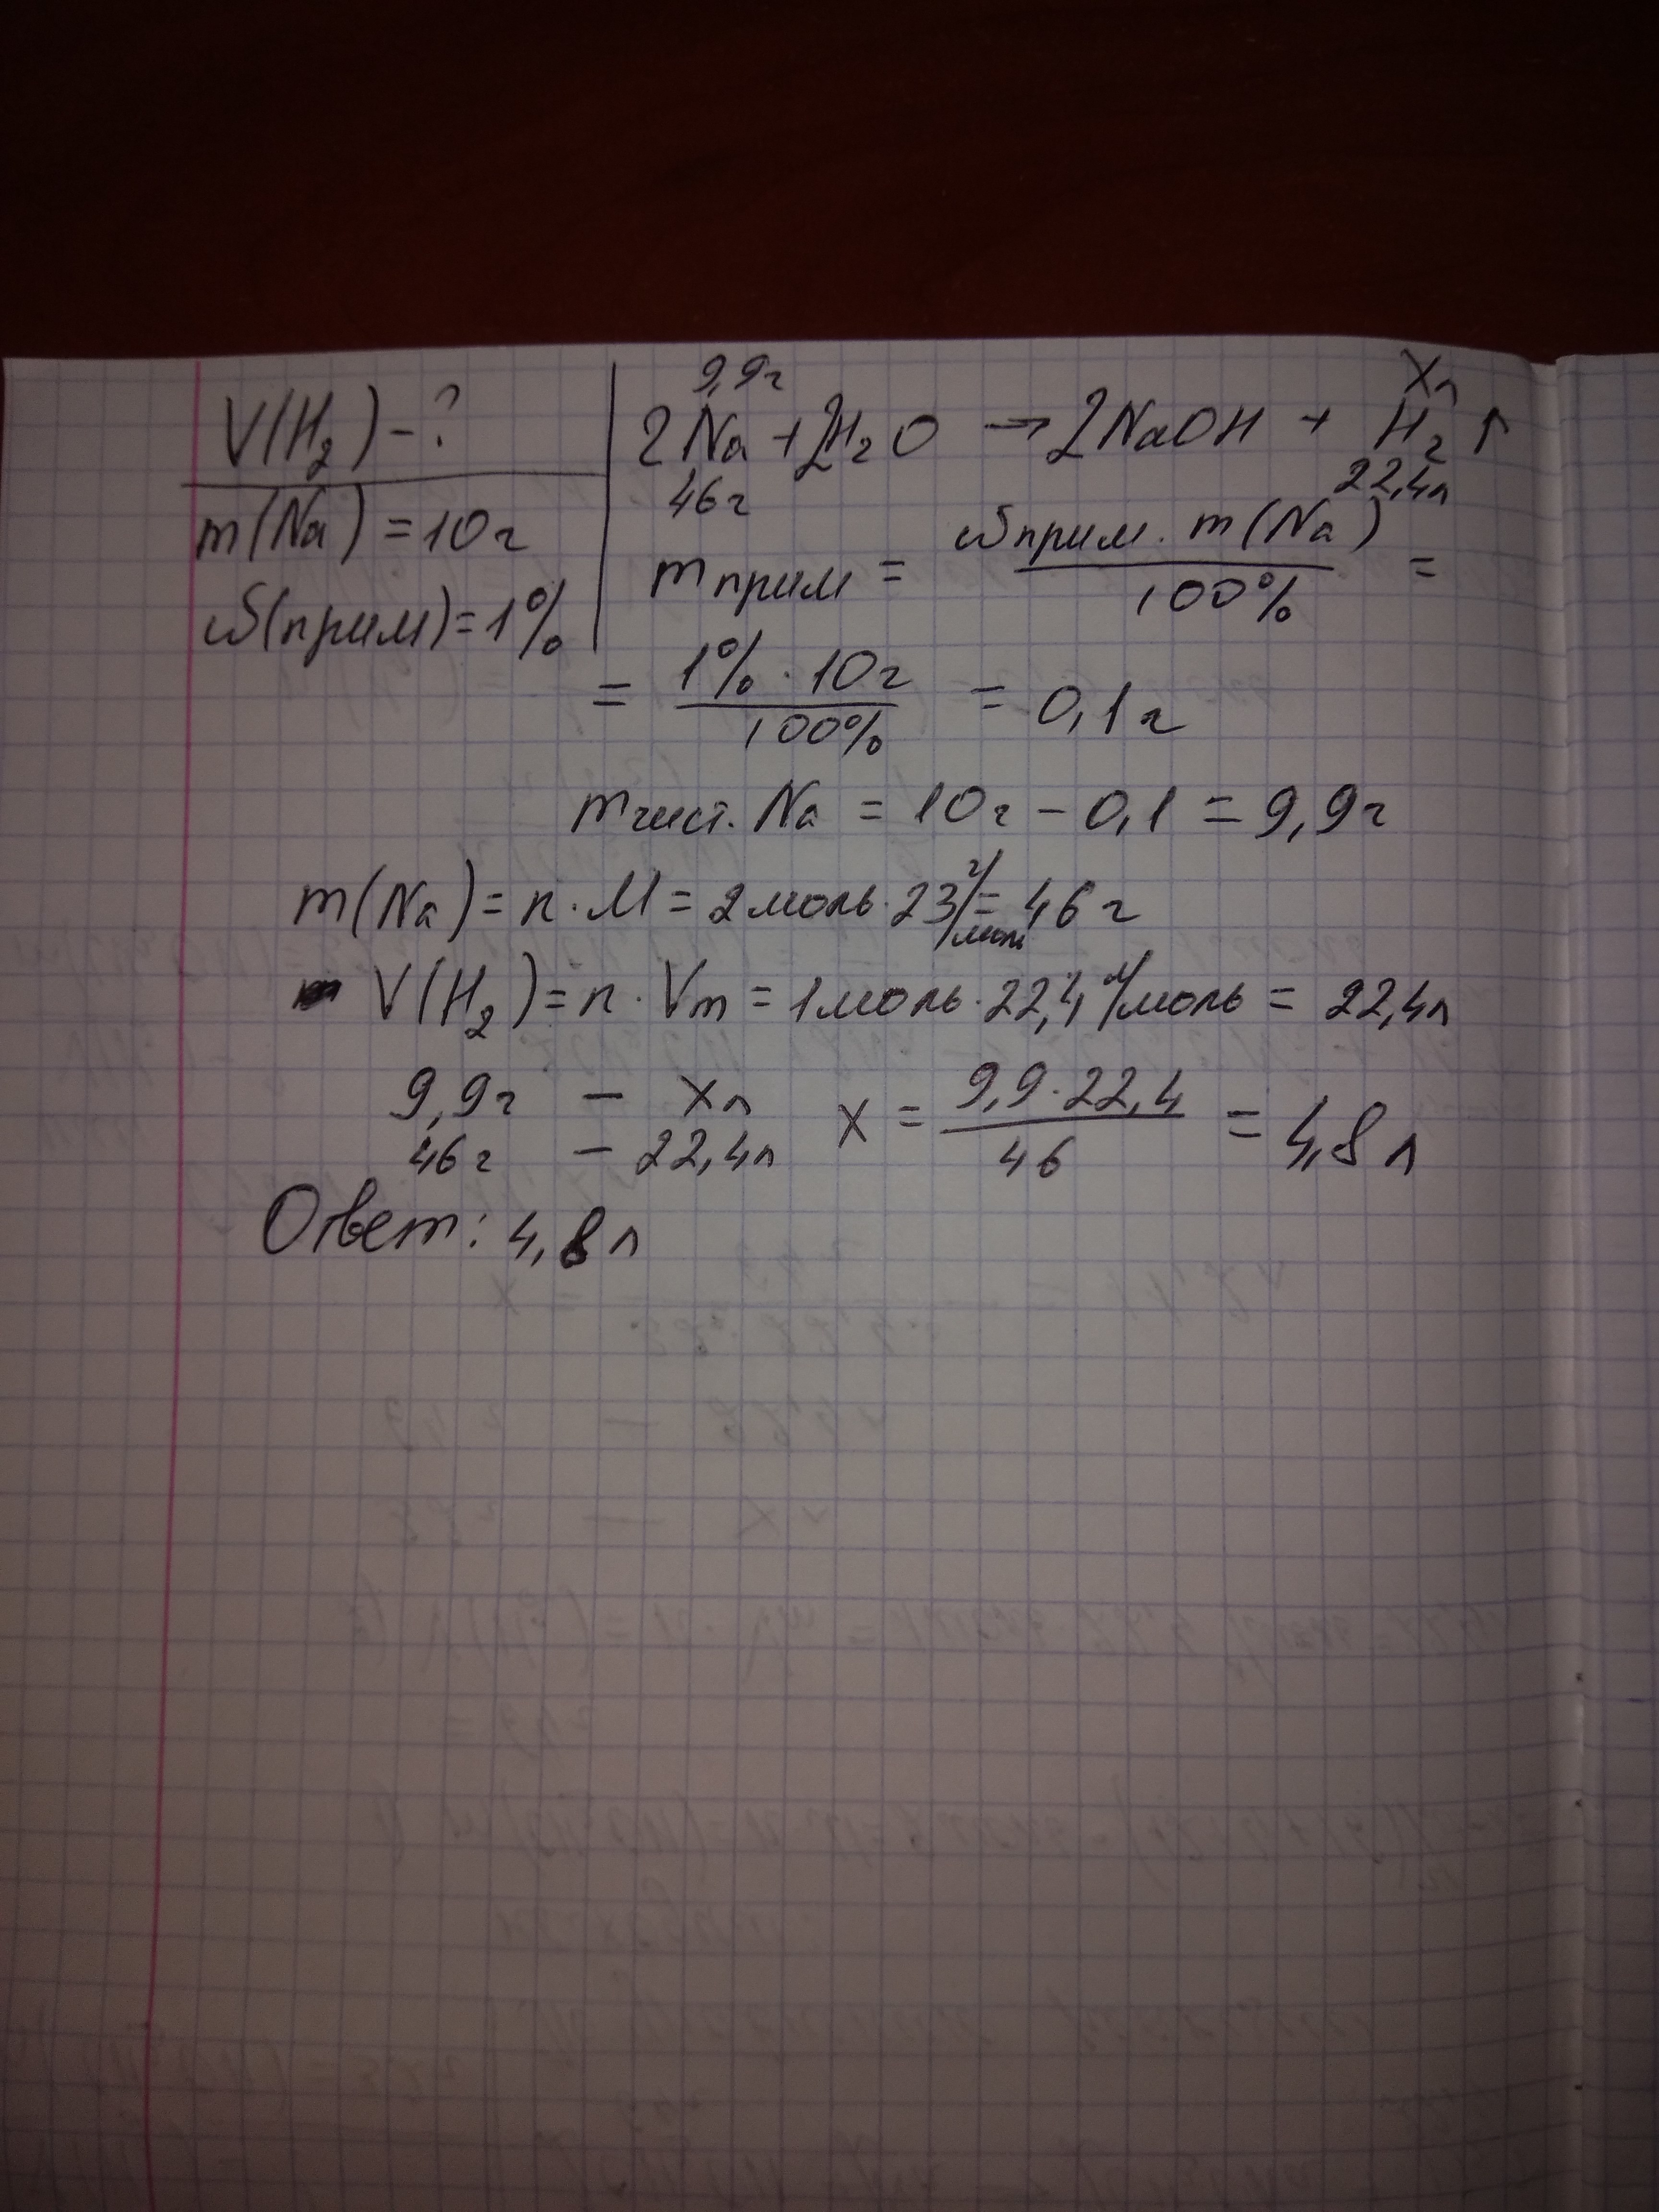 V(H₂) - ?
m(Na) = 10г
ω(прим) = 1%
9,9г Xл
2Na + 2H₂O → 2NaOH + H₂↑
46г 22,4л
m прим = ω прим. m(Na) / 100% =
= 1% · 10г / 100% = 0,1г
m чист. Na = 10г - 0,1 = 9,9г
m(Na) = n · M = 2моль · 23 г/моль = 46г
V(H₂) = n · Vm = 1моль · 22,4 л/моль = 22,4л
9,9г - xл x = 9,9 · 22,4 / 46 = 4,8л
46г - 22,4л
Ответ: 4,8л